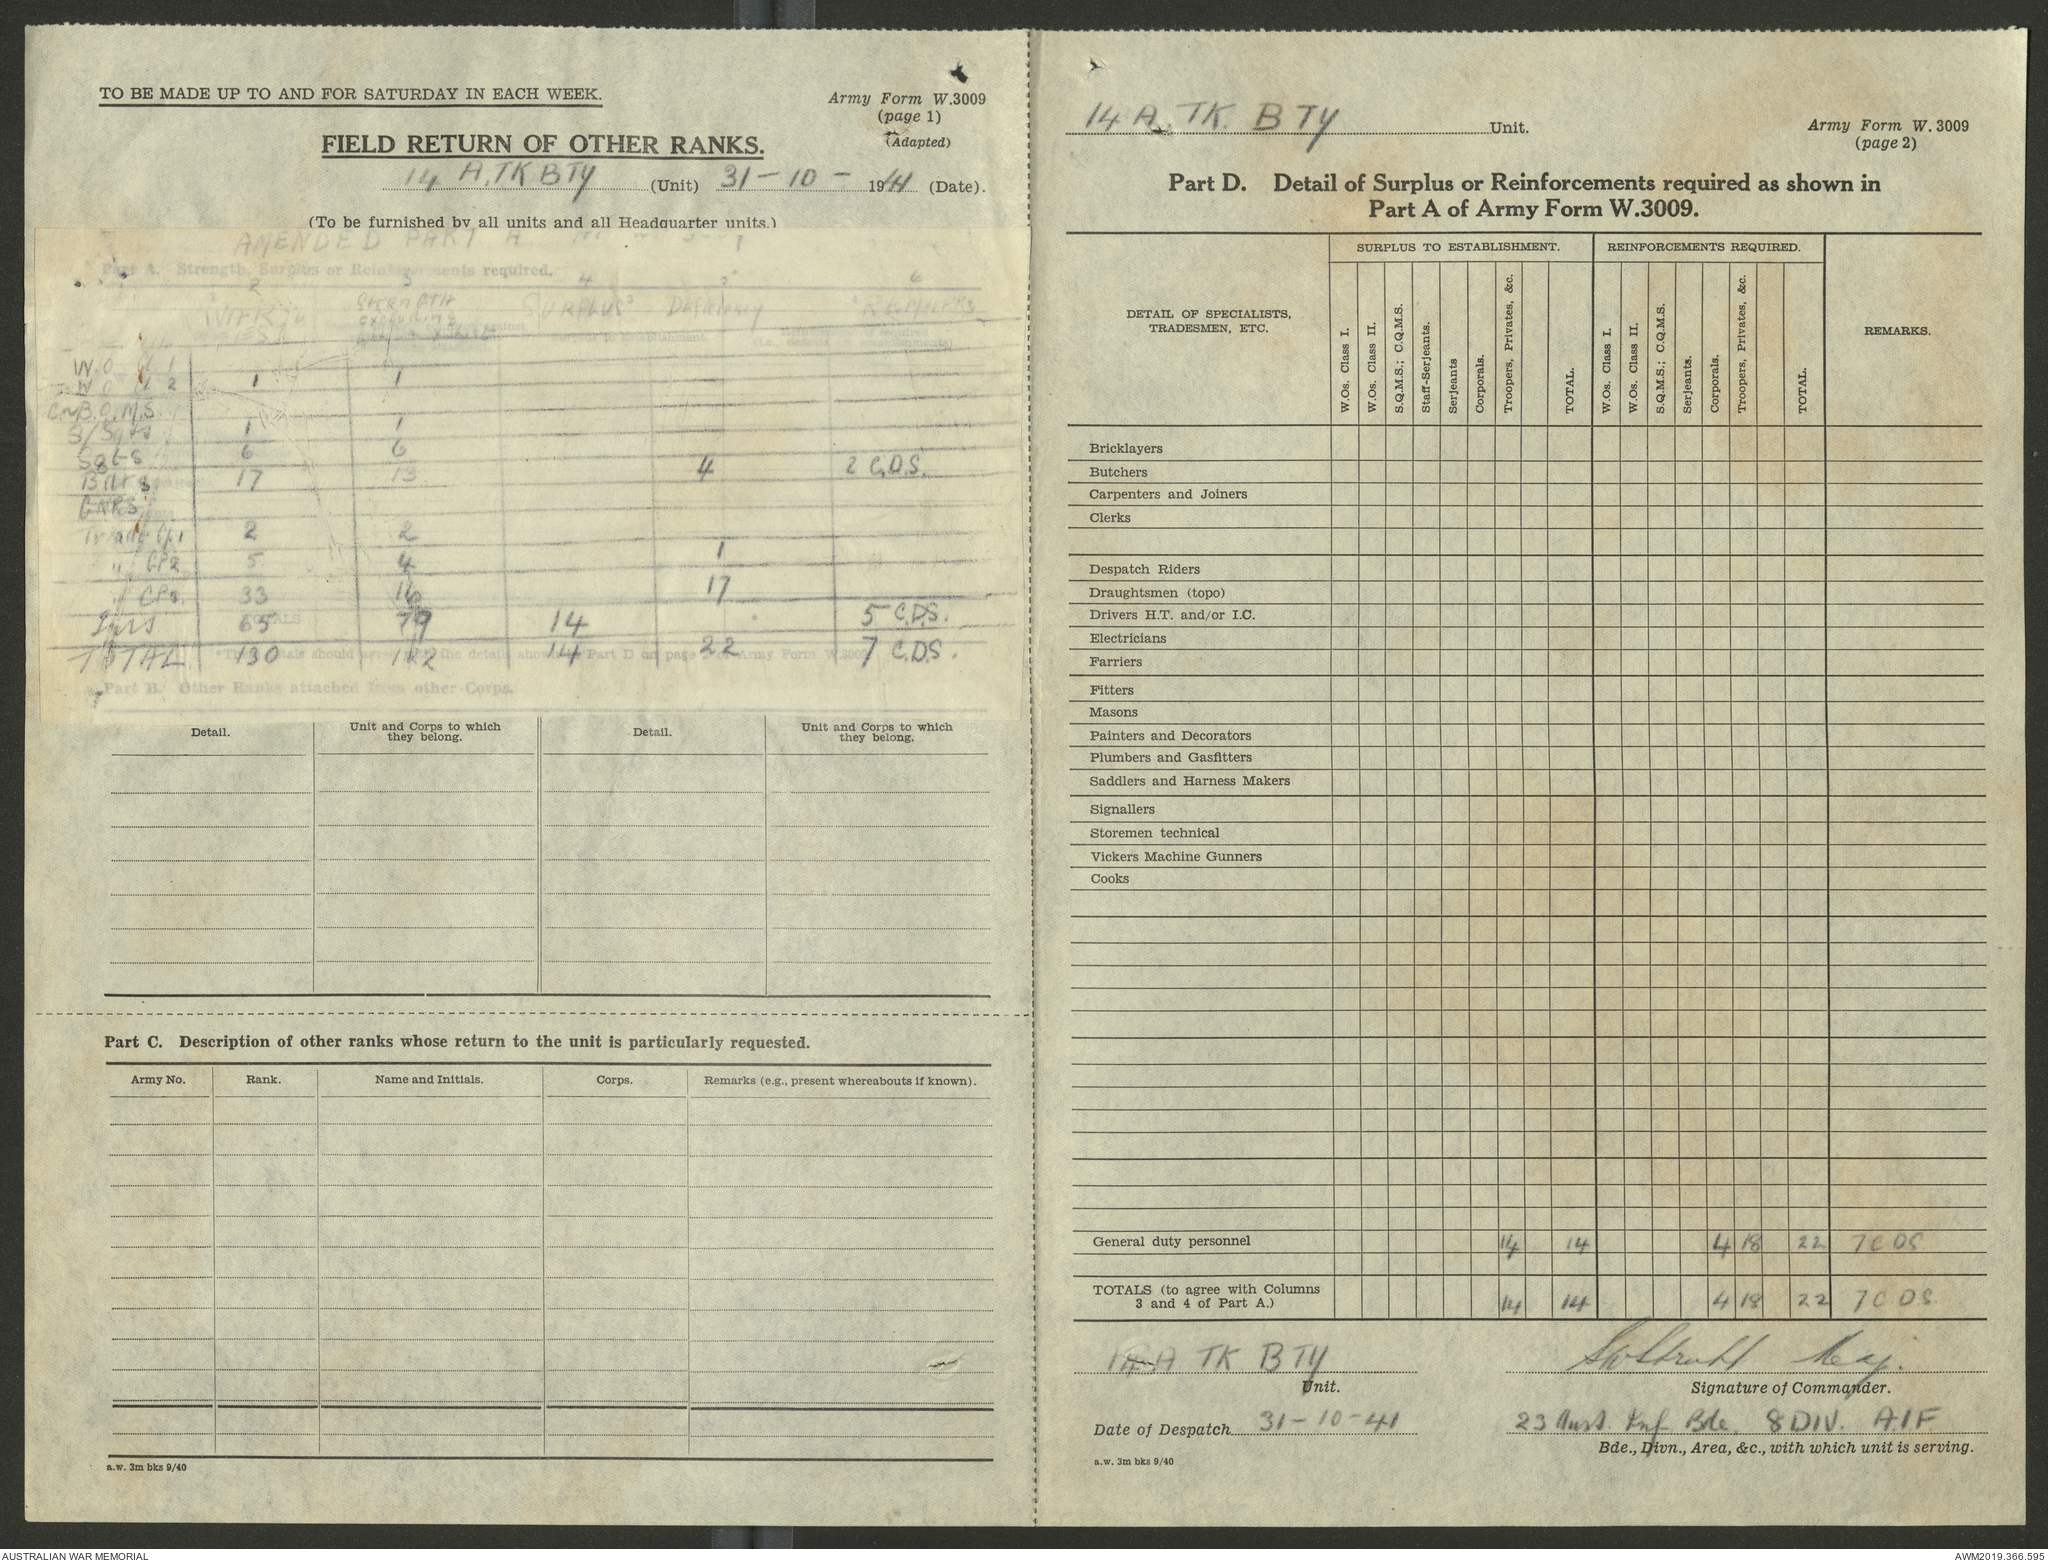 TO BE MADE UP TO AND FOR SATURDAY IN EACH WEEK.
Army Form W.3009
(page 1)
(Adapted)
FIELD RETURN OF OTHER RANKS.
14 A.TK BTY (Unit) 31-10-1941 (Date).
(To be furnished by all units and all Headquarter units.)
AMENDED PART A
Part A. Strength, Surplus or Reinforcements required.
2 3 4 5 6
WAR STRENGTH SURPLUS Deficiency REMARKS
excluding
W.O. Cl 1
W.O. Cl 2 1 1
B.Q.M.S.
S/Sgts 1 1
Sgts 6 6
Bdrs 17 13 4 2 C.D.S.
GNRS
Trade Gp1 2 2
" GP2 5 4 1
" GP3 33 16 17
65 79 14 5 C.D.S.
TOTAL 130 122 14 22 7 C.D.S.
Part B. Other Ranks attached from other Corps.
Detail. Unit and Corps to which they belong. Detail. Unit and Corps to which they belong.
Part C. Description of other ranks whose return to the unit is particularly requested.
Army No. Rank. Name and Initials. Corps. Remarks (e.g., present whereabouts if known).
a.w. 3m bks 9/40
14 A. TK. BTY Unit.
Army Form W. 3009
(page 2)
Part D. Detail of Surplus or Reinforcements required as shown in
Part A of Army Form W.3009.
SURPLUS TO ESTABLISHMENT. REINFORCEMENTS REQUIRED.
DETAIL OF SPECIALISTS,
TRADESMEN, ETC.
W.Os. Class I.
W.Os. Class II.
S.Q.M.S.; C.Q.M.S.
Staff-Serjeants.
Serjeants
Corporals.
Troopers, Privates, &c.
TOTAL.
W.Os. Class I.
W.Os. Class II.
S.Q.M.S.; C.Q.M.S.
Serjeants.
Corporals.
Troopers, Privates, &c.
TOTAL.
REMARKS.
Bricklayers
Butchers
Carpenters and Joiners
Clerks
Despatch Riders
Draughtsmen (topo)
Drivers H.T. and/or I.C.
Electricians
Farriers
Fitters
Masons
Painters and Decorators
Plumbers and Gasfitters
Saddlers and Harness Makers
Signallers
Storemen technical
Vickers Machine Gunners
Cooks
General duty personnel 14 14 4 18 22 7 C DS
TOTALS (to agree with Columns
3 and 4 of Part A.) 14 14 4 18 22 7 C DS
14 A TK BTY
Unit.
Maj.
Signature of Commander.
Date of Despatch 31-10-41
23 Aust. Inf Bde. 8 DIV. A.I.F
Bde., Divn., Area, &c., with which unit is serving.
a.w. 3m bks 9/40
AUSTRALIAN WAR MEMORIAL
AWM2019.366.595